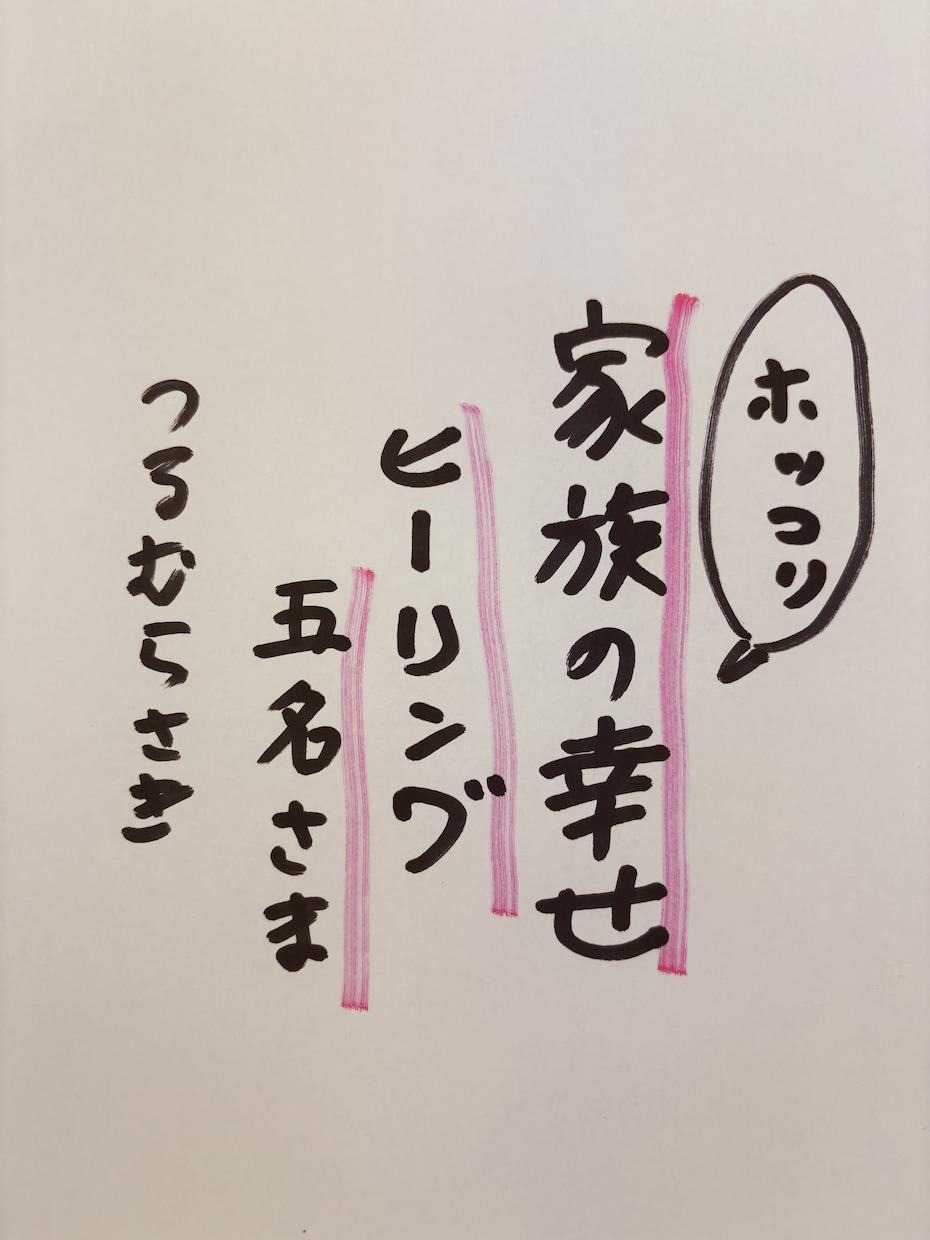 ホッコリ
家族の幸せ
ヒーリング
五名さま
つるむらさき